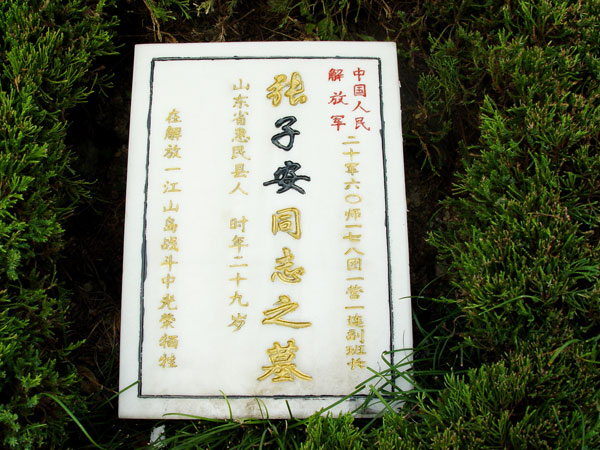 中国人民
解放军
二十军六〇师一七八团一营一连副班长
张子安同志之墓
山东省惠民县人 时年二十九岁
在解放一江山岛战斗中光荣犧牲